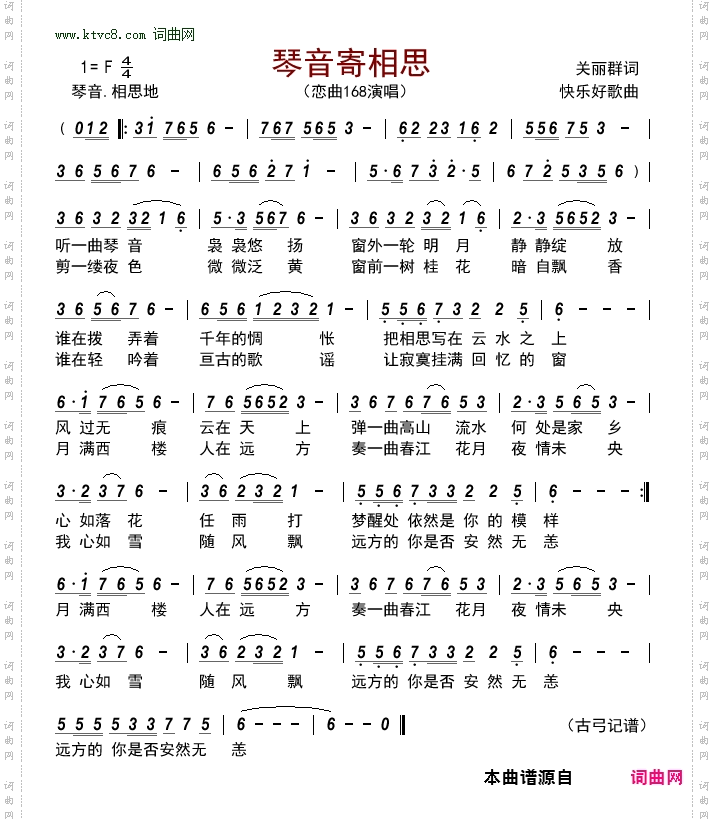 www.ktvc8.com 词曲网
琴音寄相思
1= F 4/4
关丽群词
琴音.相思地
（恋曲168演唱）
快乐好歌曲
( 0 1 2 ‖: 3 1 7 6 5 6 - | 7 6 7 5 6 5 3 - | 6 2 2 3 1 6 2 - | 5 5 6 7 5 3 - |
3 6 5 6 7 6 - | 6 5 6 2 7 1 - | 5 · 6 7 3 2 · 5 | 6 7 2 5 3 5 6 ) |
3 6 3 2 3 2 1 6 | 5 · 3 5 6 7 6 - | 3 6 3 2 3 2 1 6 | 2 · 3 5 6 5 2 3 - |
听一曲琴 音 袅 袅悠 扬 窗外一轮 明 月 静 静绽 放
剪一缕夜 色 微 微泛 黄 窗前一树 桂 花 暗 自飘 香
3 6 5 6 7 6 - | 6 5 6 1 2 3 2 1 - | 5 5 5 6 7 3 2 2 5 | 6 - - - |
谁在拨 弄着 千年的惆 怅 把相思写在 云 水 之 上
谁在轻 吟着 亘古的歌 谣 让寂寞挂满 回 忆 的 窗
6 · 1 7 6 5 6 - | 7 6 5 6 5 2 3 - | 3 6 7 6 7 6 5 3 | 2 · 3 5 6 5 3 - |
风 过无 痕 云在 天 上 弹一曲高山 流水 何 处是家 乡
月 满西 楼 人在 远 方 奏一曲春江 花月 夜 情未 央
3 · 2 3 7 6 - | 3 6 2 3 2 1 - | 5 5 6 7 3 3 2 2 5 | 6 - - - :‖
心 如落 花 任 雨 打 梦醒处 依然是 你 的 模 样
我 心如 雪 随 风 飘 远方的 你是否 安 然 无 恙
6 · 1 7 6 5 6 - | 7 6 5 6 5 2 3 - | 3 6 7 6 7 6 5 3 | 2 · 3 5 6 5 3 - |
月 满西 楼 人在 远 方 奏一曲春江 花月 夜 情未 央
3 · 2 3 7 6 - | 3 6 2 3 2 1 - | 5 5 6 7 3 3 2 2 5 | 6 - - - |
我 心如 雪 随 风 飘 远方的 你是否 安 然 无 恙
5 5 5 5 3 3 7 7 5 | 6 - - - | 6 - - 0 ‖
（古弓记谱）
远方的 你是否安然无 恙
本曲谱源自
词曲网